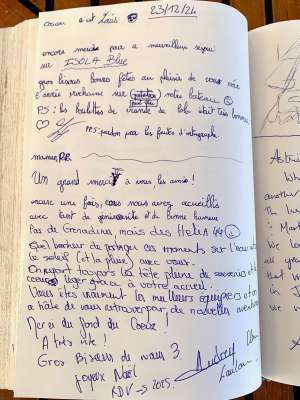 coucou c'est Loïs 23/12/24
encore merci pour ce merveilleux sejour
sur ISOLA Blue
gros bisous bonnes fêtes au plaisir de vous voir
l'année prochaine sur notre bateau
P.S: les boulettes de viande de lolo était très bonnes
PPS: pardon pour les fautes d'ortographe
maman
Un grand merci à vous les amis!
encore une fois, vous nous avez accueillis
avec tant de générosité et de bonne humeur
Pas de Grenadines, mais des
Quel bonheur de partager ces moments sur l'eau et
le soleil (et la pluie) avec vous.
On repart toujours la tête pleine de souvenirs et le
coeur léger grâce à votre accueil.
Vous êtes vraiment les meilleurs équipiers et on
a hâte de vous retrouver pour de nouvelles aventures
Merci du fond du coeur!
A très vite!
Gros Bisous de nous 3.
Joyeux Noël
RDV → 2025
Audrey
Astr
Wh
The
: Mart
We lo
all
that
in J
we